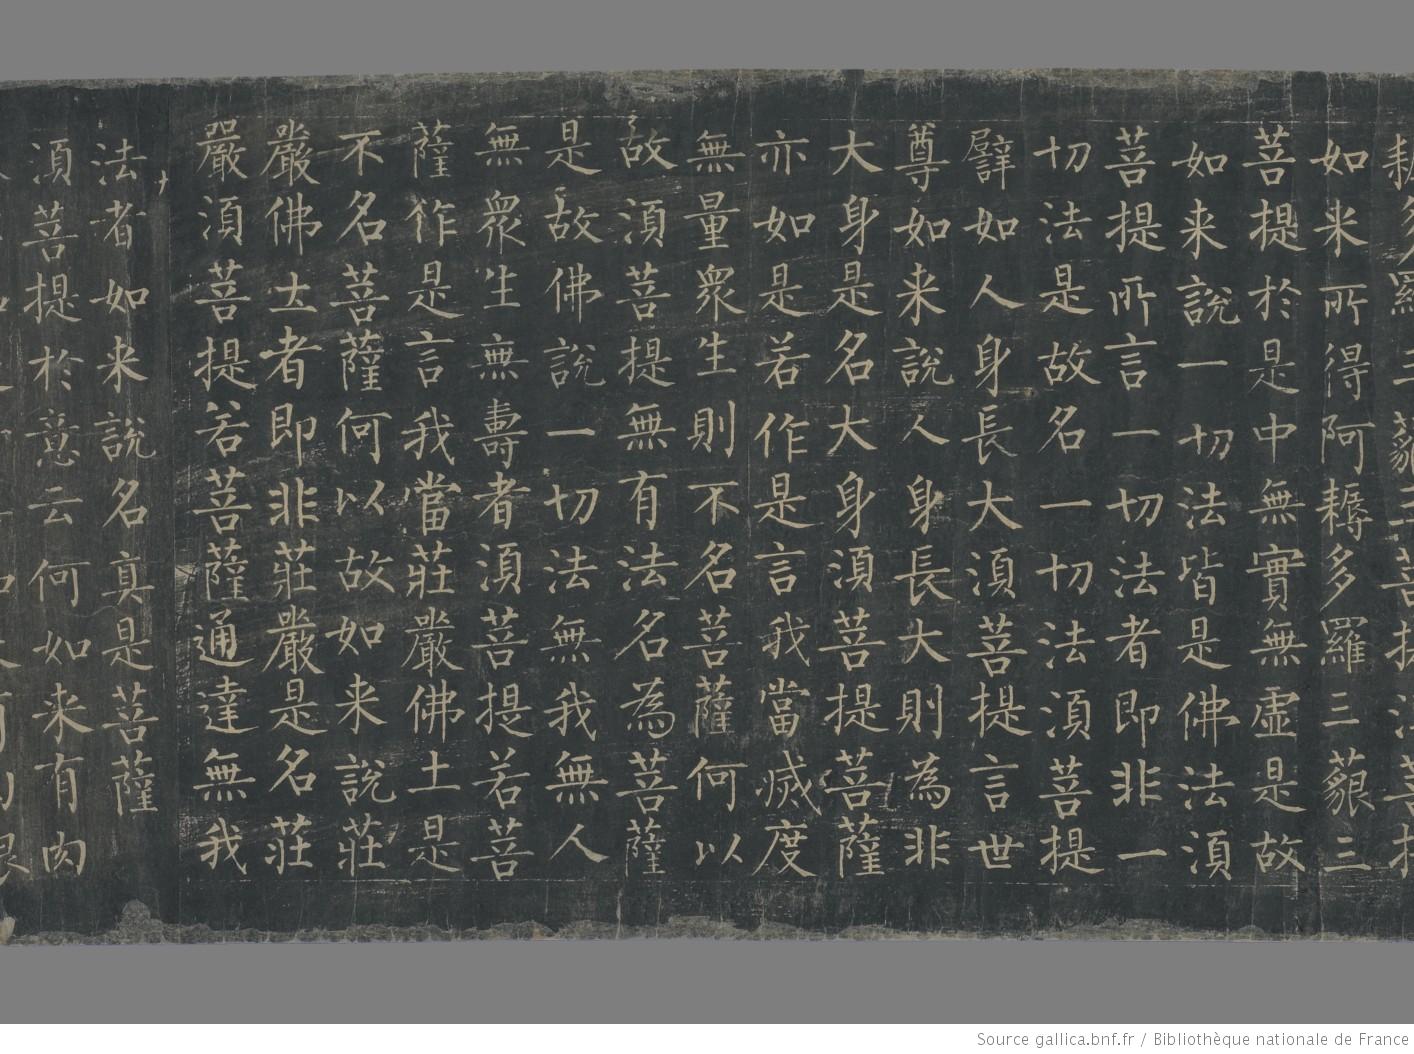 耨多羅三藐三菩提須菩提
如来所得阿耨多羅三藐三
菩提於是中無實無虛是故
如来說一切法皆是佛法須
菩提所言一切法者即非一
切法是故名一切法須菩提
譬如人身長大須菩提言世
尊如来說人身長大則為非
大身是名大身須菩提菩薩
亦如是若作是言我當滅度
無量衆生則不名菩薩何以
故須菩提無有法名為菩薩
是故佛說一切法無我無人
無衆生無壽者須菩提若菩
薩作是言我當莊嚴佛土是
不名菩薩何以故如来說莊
嚴佛土者即非莊嚴是名莊
嚴須菩提若菩薩通達無我
法者如来說名真是菩薩
須菩提於意云何如来有肉
Source gallica.bnf.fr / Bibliothèque nationale de France